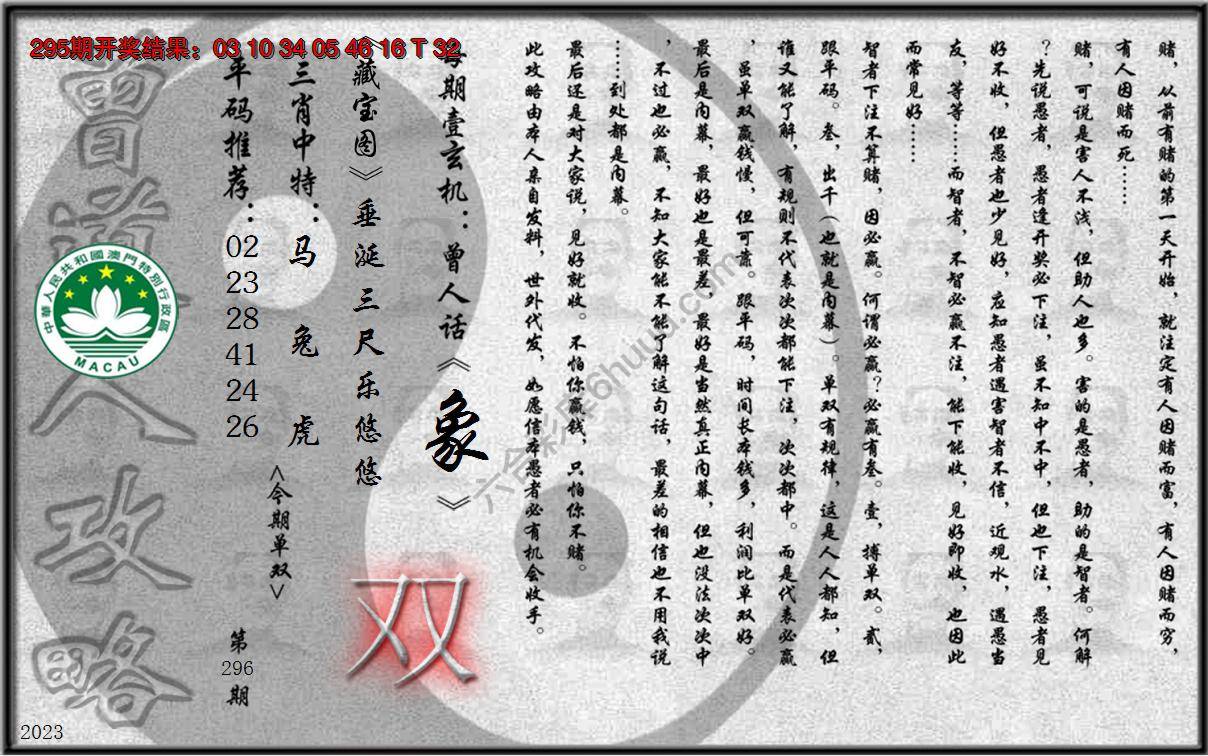 295期开奖结果：03 10 34 05 46 16 T 32
赌，从前有赌的第一天开始，就注定有人因赌而富，有人因赌而穷，
有人因赌而死……
赌，可说是害人不浅，但助人也多。害的是愚者，助的是智者。何解
？先说愚者，愚者逢开奖必下注，虽不知中不中，但也下注，愚者见
好不收，但愚者也少见好，应知愚者遇害智者不信，近观水，遇愚当
友，等等……而智者，不智必赢不注，能下能收，见好即收，也因此
而常见好……
智者下注不算赌，因必赢。何谓必赢？必赢有叁。壹，搏单双。贰，
跟平码。叁，出千（也就是内幕）。单双有规律，这是人人都知，但
谁又能了解，有规则不代表次次都能下注，次次都中。而是代表必赢
，虽单双赢钱慢，但可靠。跟平码，时间长本钱多，利润比单双好。
最后是内幕，最好也是最差，最好是当然真正内幕，但也没法次次中
，不过也必赢，不知大家能不能了解这句话，最差的相信也不用我说
……到处都是内幕。
最后还是对大家说，见好就收。不怕你赢钱，只怕你不赌。
此攻略由本人亲自发料，世外代发，如愿信本愚者必有机会收手。
每期壹玄机：曾人话《象》
《藏宝图》垂涎三尺乐悠悠
双
三肖中特：马 兔 虎
<今期单双>
平码推荐：02 23 28 41 24 26
第296期
曾道人攻略
中華人民共和國澳門特別行政區
MACAU
六合彩库6huuu.com
2023